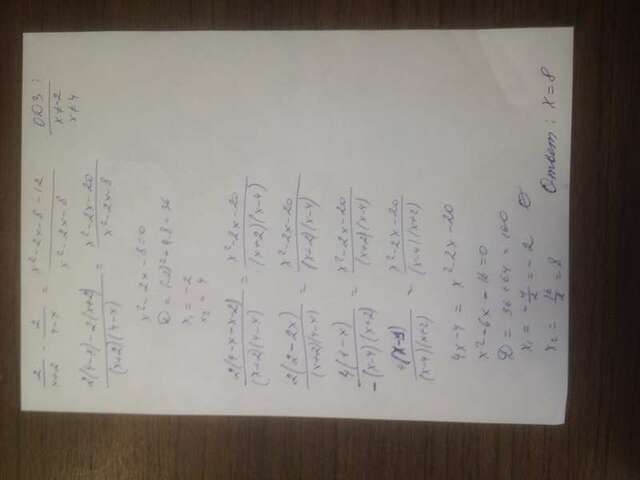 2/(x+2) - 2/(4-x) = (x²-2x-8-12)/(x²-2x-8)
ОДЗ:
x≠-2
x≠4
(2(4-x)-2(x+2))/((x+2)(4-x)) = (x²-2x-20)/(x²-2x-8)
x²-2x-8=0
D = (-2)²+4·8=36
x₁ = -2
x₂ = 4
2(4-x-x-2)/((x+2)(4-x)) = (x²-2x-20)/((x+2)(x-4))
2(2-2x)/((x+2)(4-x)) = (x²-2x-20)/((x+2)(x-4))
4(1-x)/(-(x-4)(x+2)) = (x²-2x-20)/((x+2)(x-4))
4(x-1)/((x-4)(x+2)) = (x²-2x-20)/((x-4)(x+2))
4x-4 = x²-2x-20
x²-6x-16=0
D = 36+64=100
x₁ = -4/2 = -2
x₂ = 16/2 = 8
Ответ: x=8